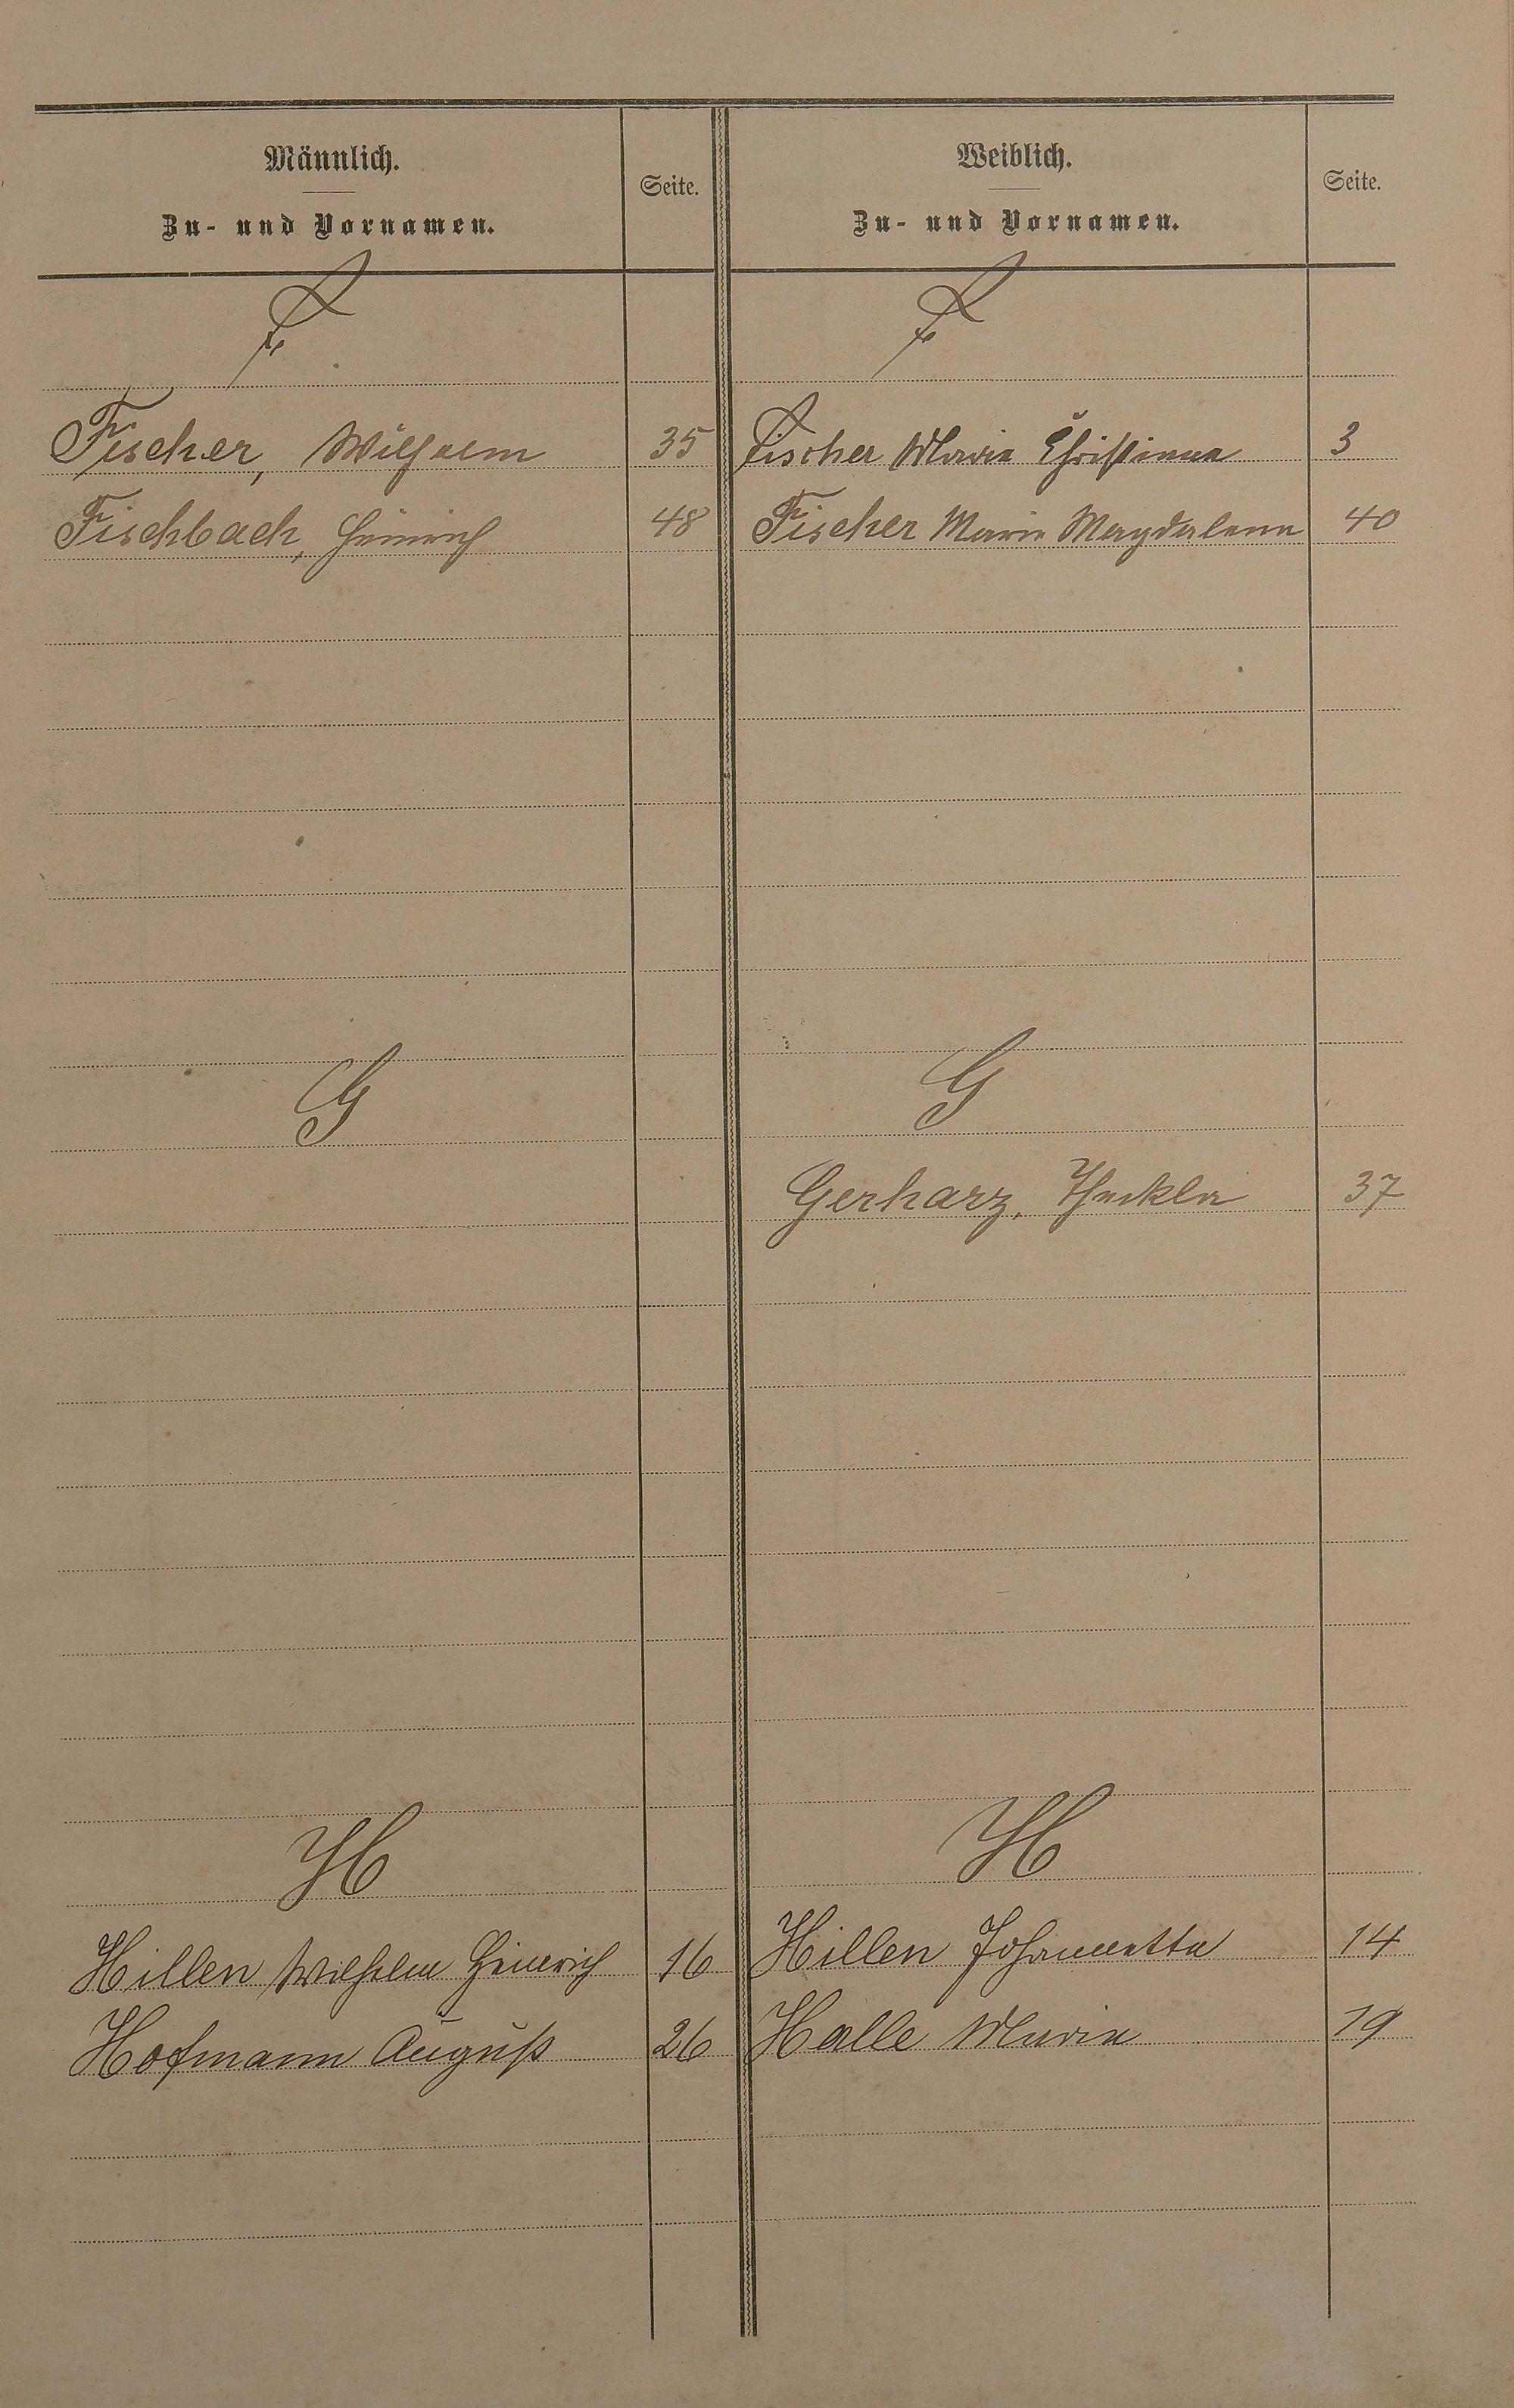 Männlich.
Zu- und Vornamen.
Seite.
Weiblich.
Zu- und Vornamen.
Seite.
F
F
Fischer, Wilhelm 35 Fischer Maria Christianna 3
Fischbach, Heinrich 48 Fischer Maria Magdalena 40
G
G
Gerharz, Theckla 37
H
H
Hillen Wilhelm Heinrich 16 Hillen Johannetta 14
Hofmann August 26 Halle Maria 19